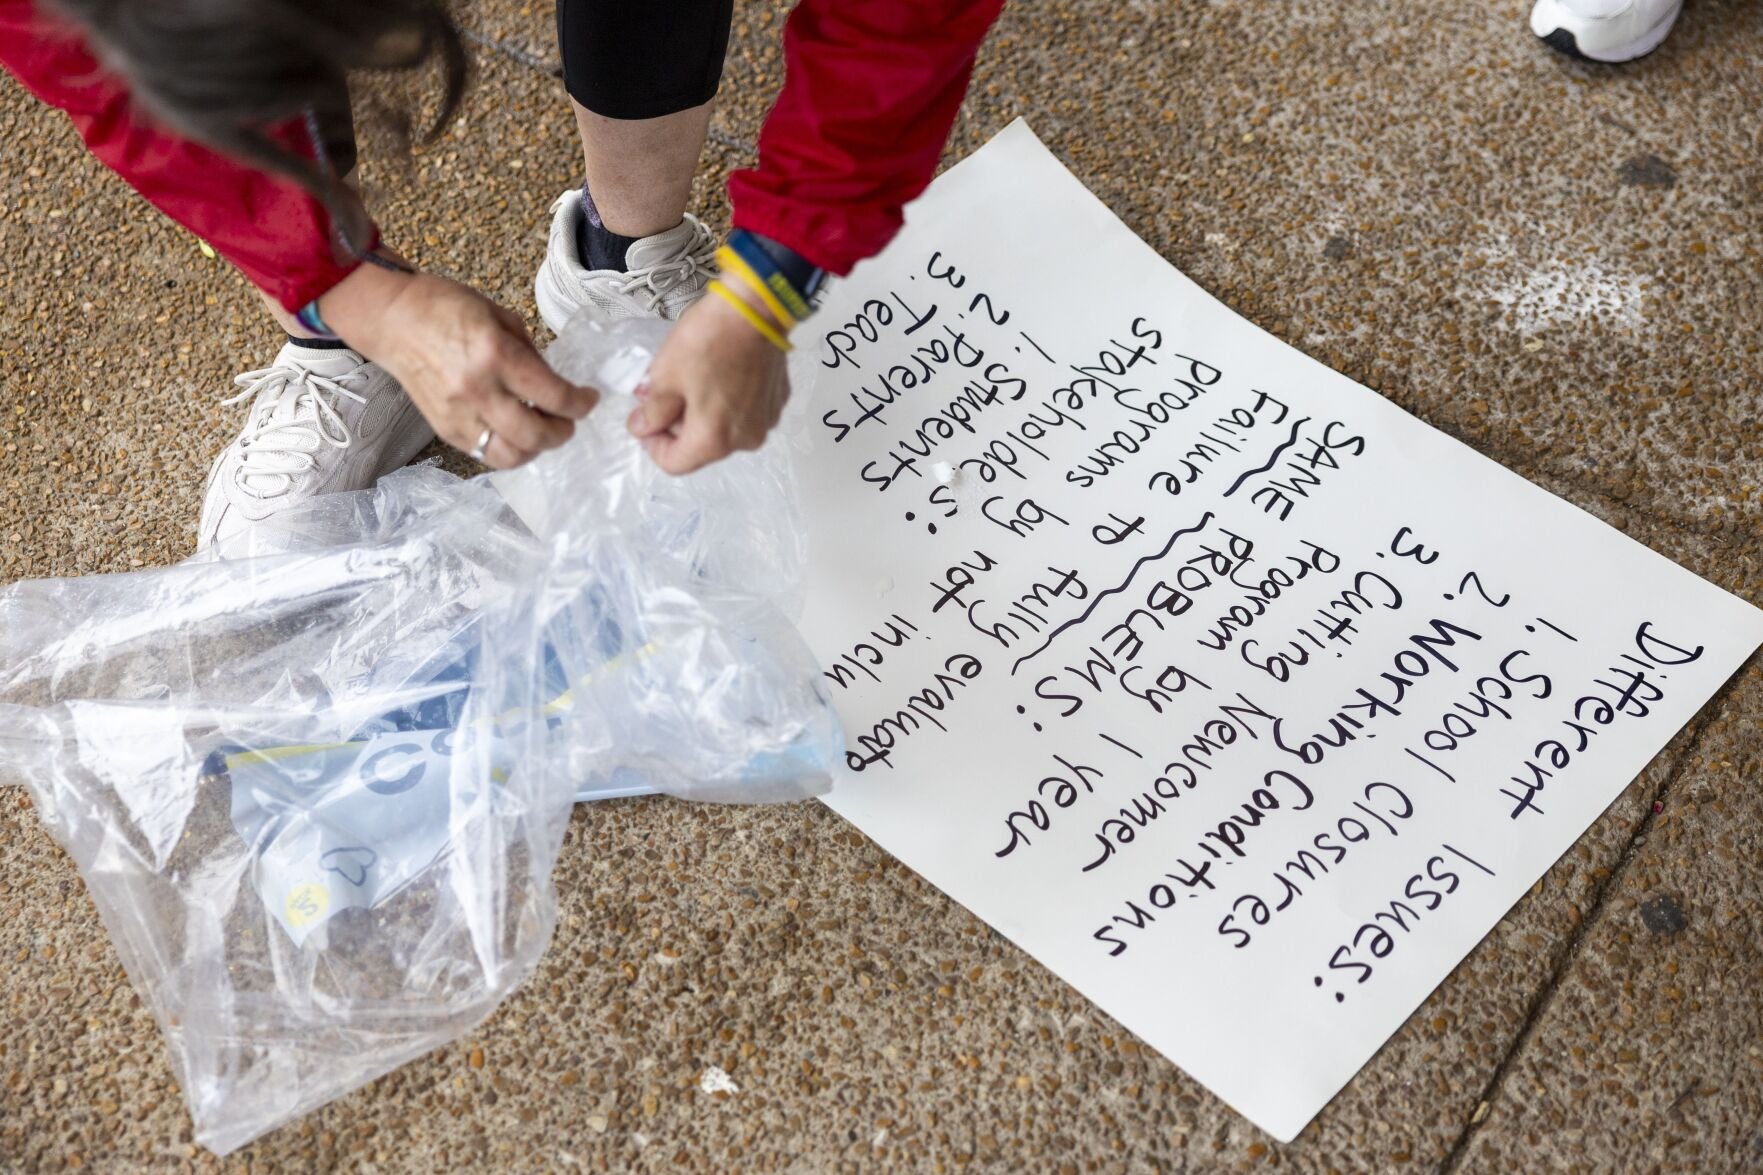 Different Issues:
1. School Closures
2. Working Conditions
3. Cutting Newcomer
Program by 1 year
SAME PROBLEMS:
Failure to fully evaluate
programs by not inclu
stakeholde s:
1. Students
2. Parents
3. Teach